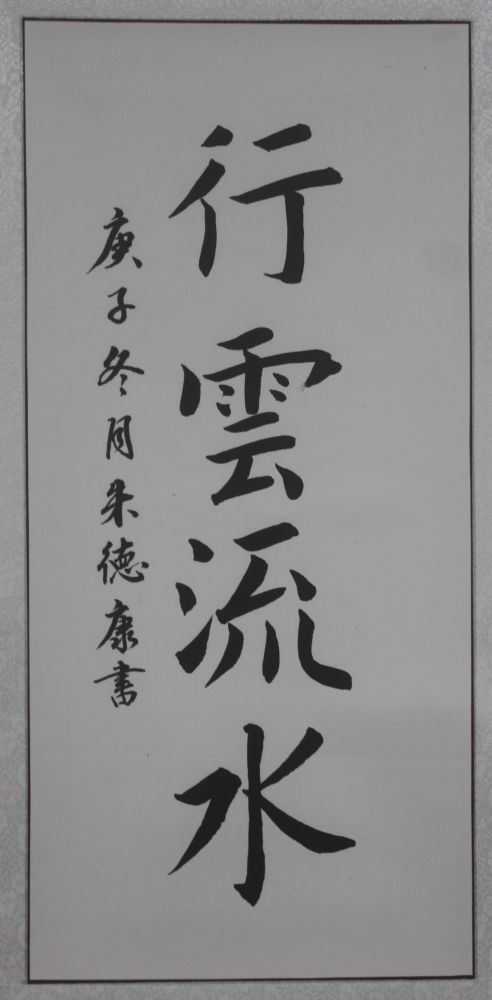 行雲流水
庚子冬月朱德康書